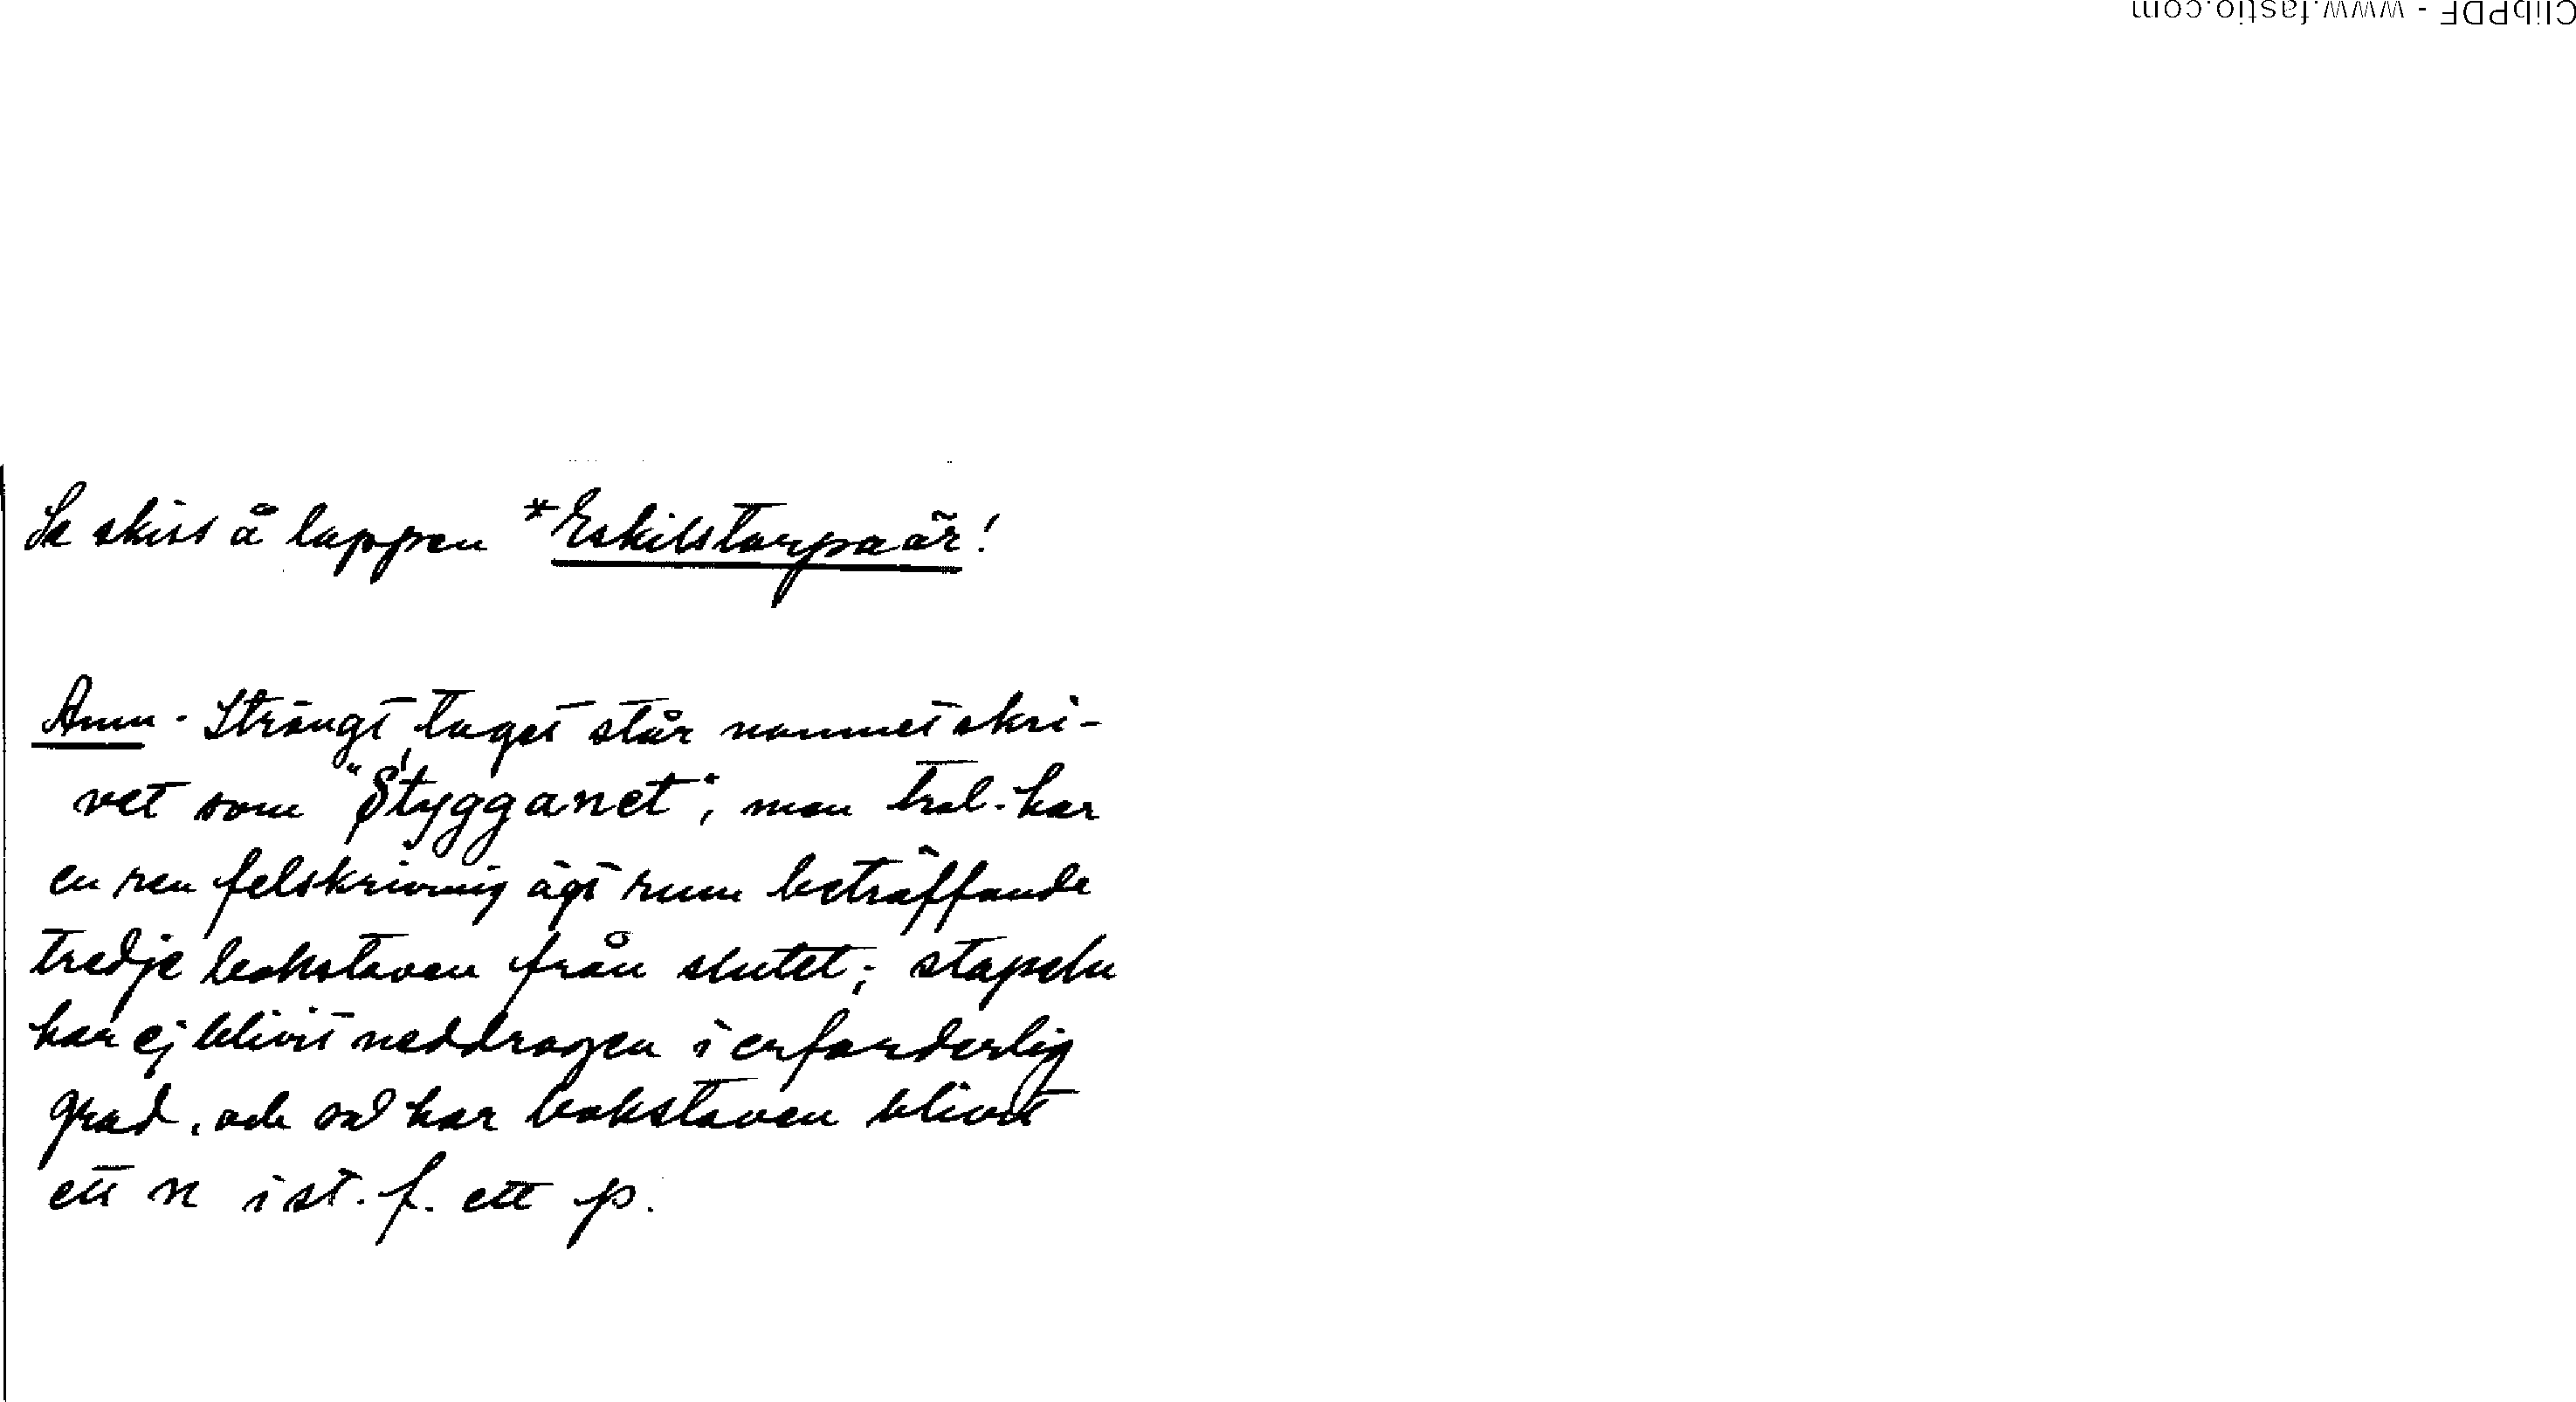 ClibPDF - www.fastio.com
Se skiss å lappen *Eskilstorpaär!
Anm. Strängt taget står namnet skri-
vet som "Stygganet", men trol. har
en ren felskrivning ägt rum beträffande
tredje bokstaven från slutet; stapeln
har ej blivit neddragen i erforderlig
grad, och så har bokstaven blivit
ett n i st. f. ett p.